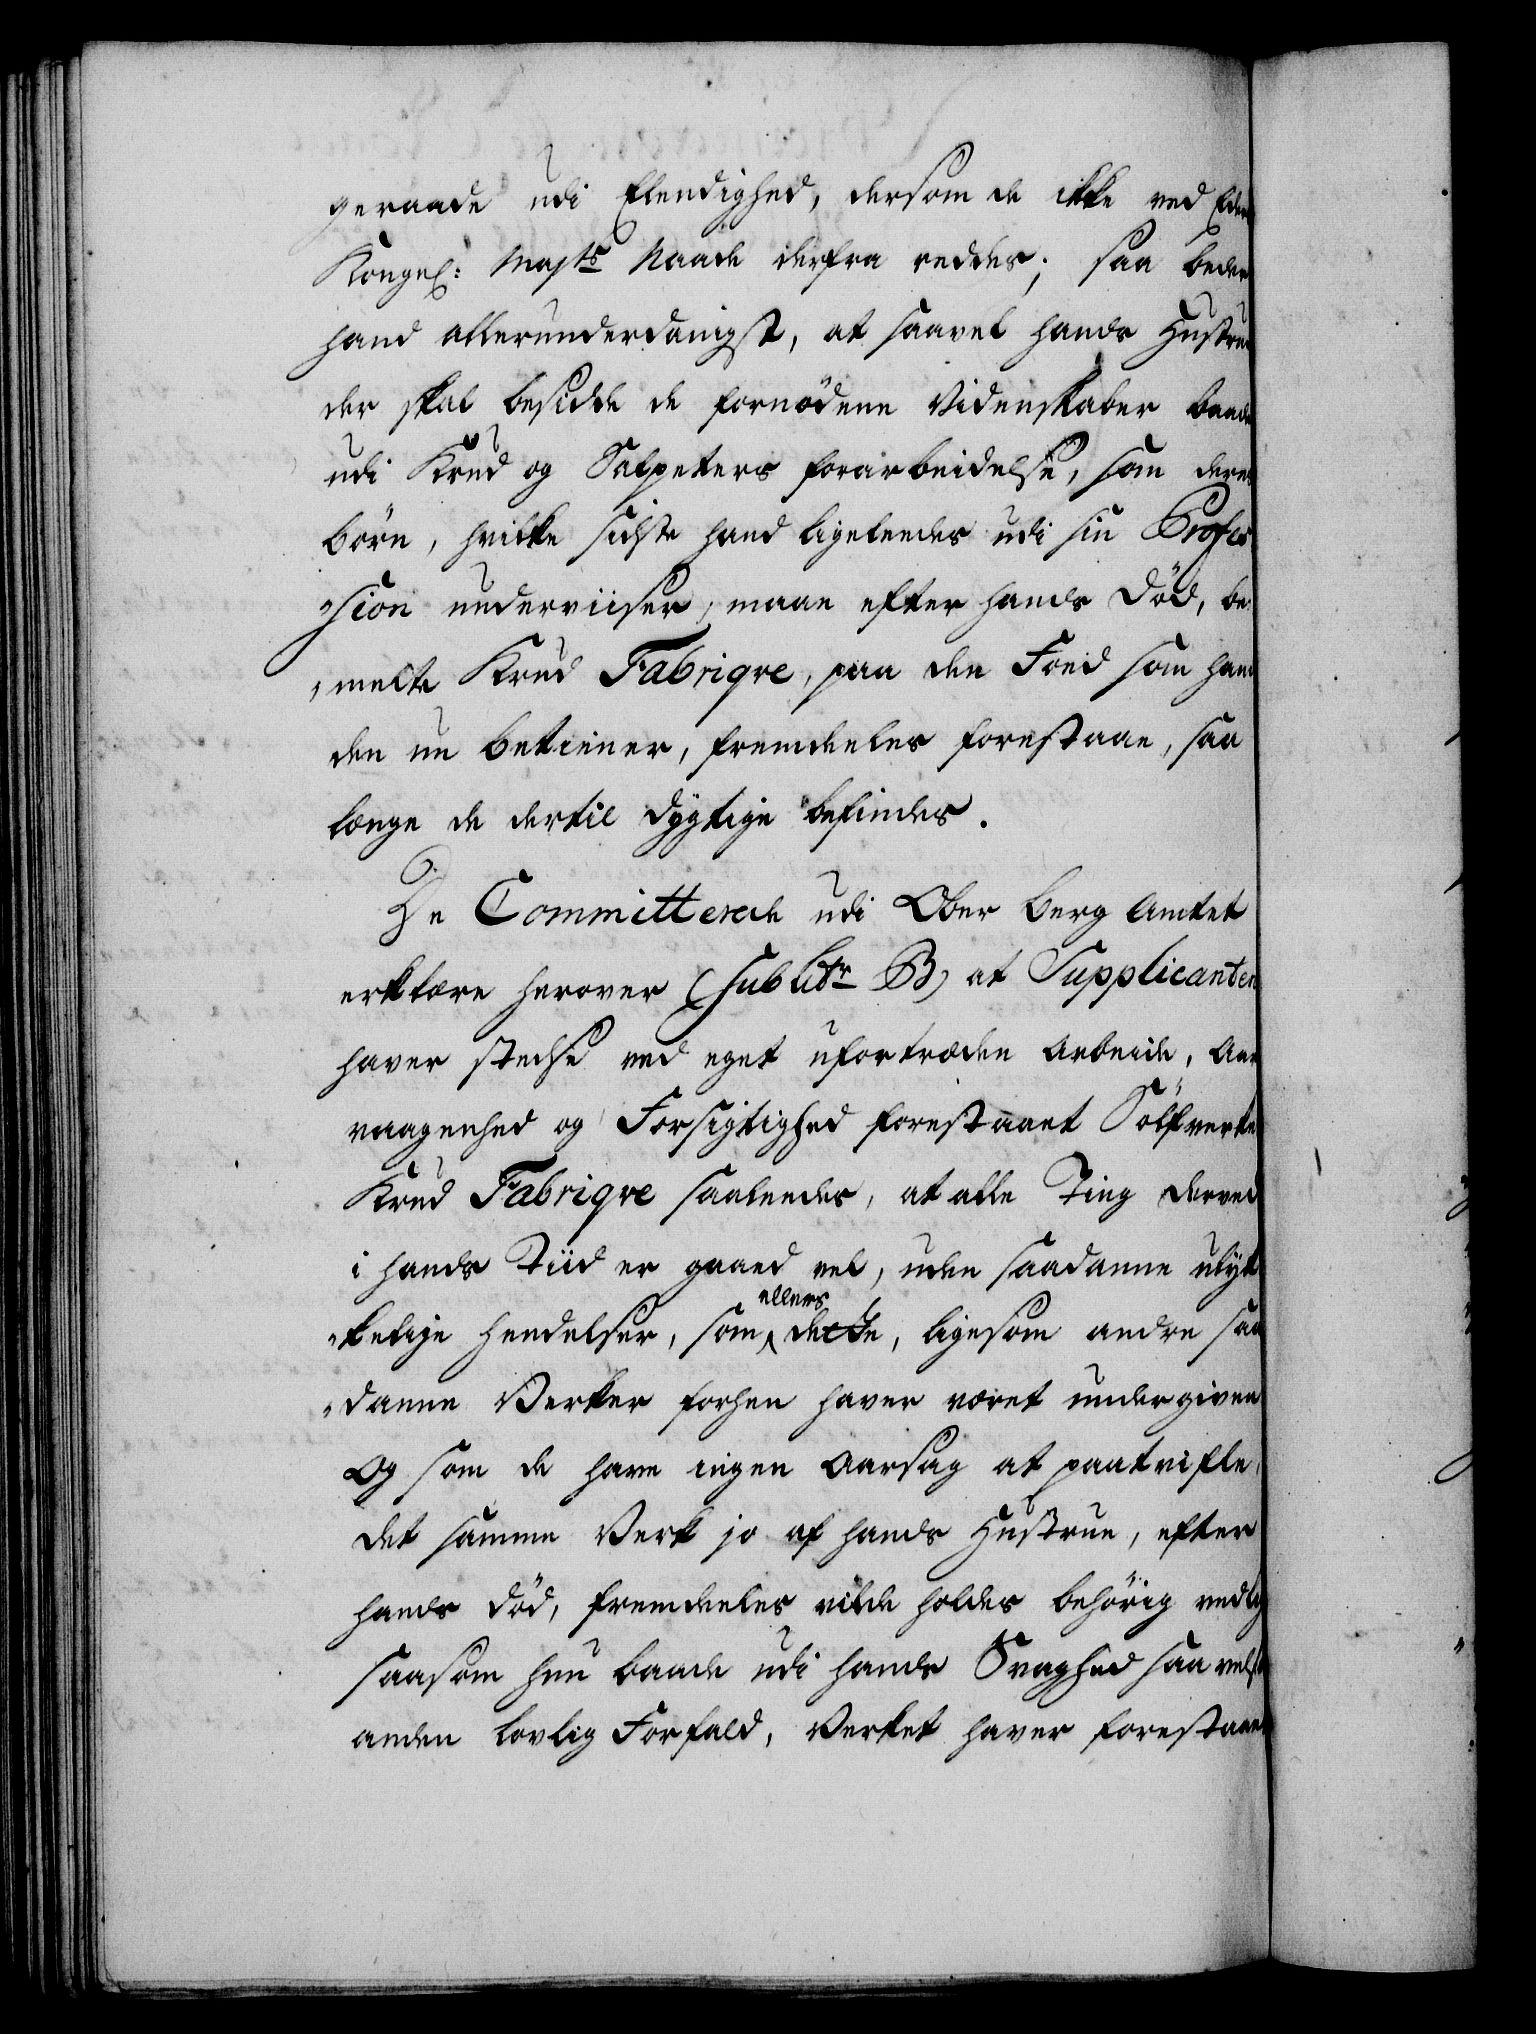 geraade udi Elendighed, dersom de ikke ved Eders
Kongel: Majts Naade derfra reddes; saa beder
hand allerunderdanigst, at saavel hands Hustrue
der skal besidde de fornödene Videnskaber baade
udi Krud og Salpeters forarbeidelse, som deres
börn, hvilke sidste hand ligeleedes udi sin Profes-
„sion underviiser, maae efter hands Död, be-
„melte Krud Fabriqve, paa den Foed som hand
den nu betiener, fremdeeles forestaae, saa
længe de dertil dygtige befindes.
De Committerede udi Ober Berg Amtet
erklære herover (sub Litr B) at Supplicanten
haver stedse ved eget ufortröden Arbeide, Aar
vaagenhed og Forsigtighed forestaaet Sölfverkets
Krud Fabriqve saaleedes, at alle Ting derved
i hands Tiid er gaaed vel, uden saadanne ulyk-
„kelige Hendelser, som ellers dette, ligesom andre saa-
„danne Verker forhen haver været undergiven
Og som de have ingen Aarsag at paatvifle,
det samme Verk jo af hands Hustrue, efter
hands Död, fremdeeles vilde holdes behörig vedlig
saasom hun baade udi hands Svaghed saavelsom
anden lovlig Forfald, Verket haver forestaaet